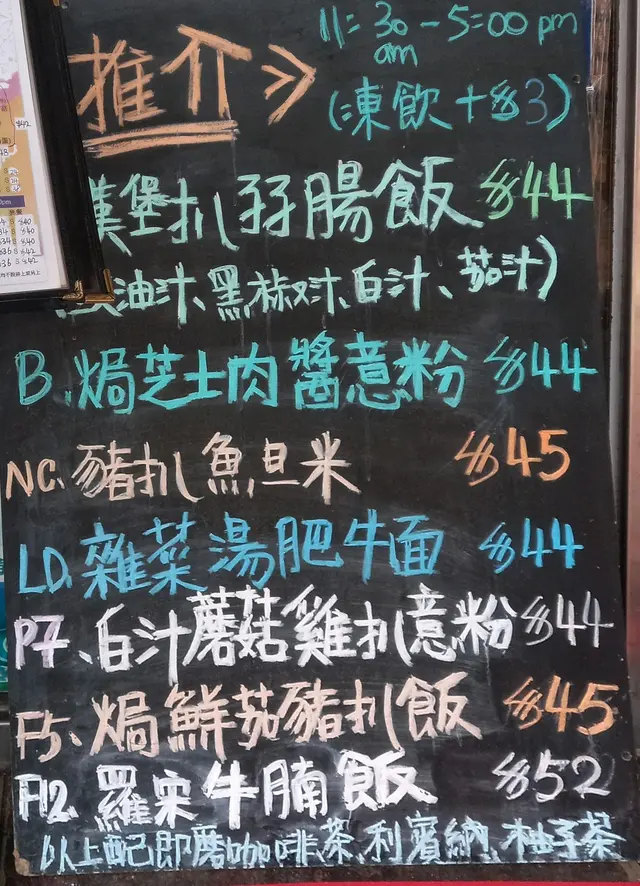 推介 >> 11=30am - 5=00pm
(凍飲 + $3)
漢堡扒孖腸飯 $44
油汁、黑椒汁、白汁、茄汁)
B、焗芝士肉醬意粉 $44
NC、豬扒魚旦米 $45
LD、雜菜湯肥牛面 $44
P7、白汁蘑菇雞扒意粉 $44
F5、焗鮮茄豬扒飯 $45
F12、羅宋牛腩飯 $52
以上配即磨咖啡、茶、利賓納、柚子茶